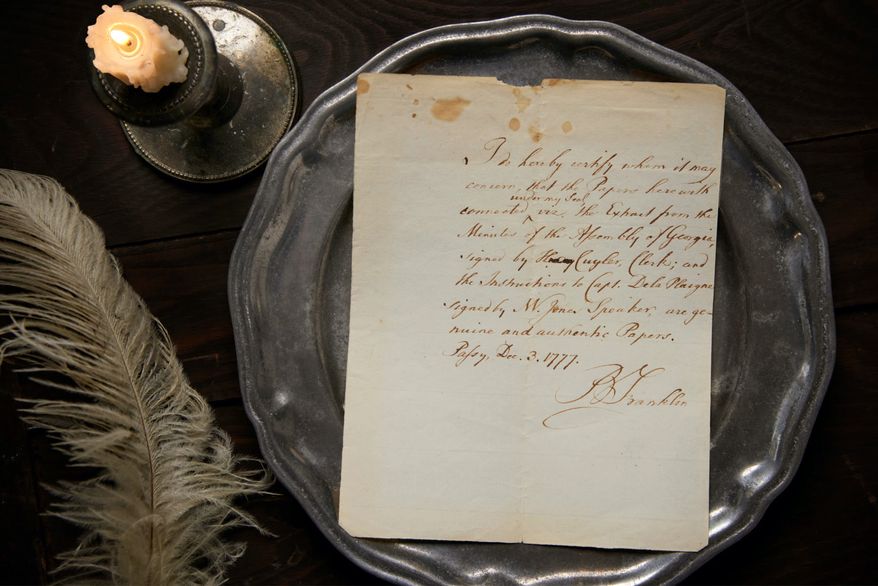 I do hereby certify whom it may
concern, that the Papers herewith
under my Seal
connected viz. the Extract from the
Minutes of the Assembly of Georgia,
signed by Cuyler, Clerk; and
the Instructions to Capt. Dela Plaigne
signed by N. W. Jones Speaker, are ge-
nuine and authentic Papers.
Passy, Dec. 3. 1777.
B Franklin